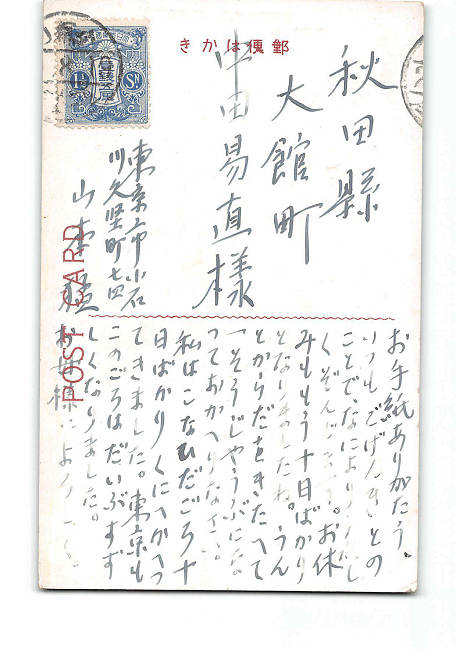 郵便はかき
秋田縣
大館町
中田易直様
東京市小石
川久堅町七四
山本
POST CARD
1½ Sn
お手紙ありがたう、
いつもごげんきとの
ことで、なによりうれし
くぞんじます。お休
みももう十日ばかり
となりましたね。うん
とからだをきたへて
一そうじやうぶにな
つておかへりなさい。
私はこなひだごろ十
日ばかりくにへかへつ
てきました。東京も
このごろはだいぶすず
しくなりました。
お母様によろしく。